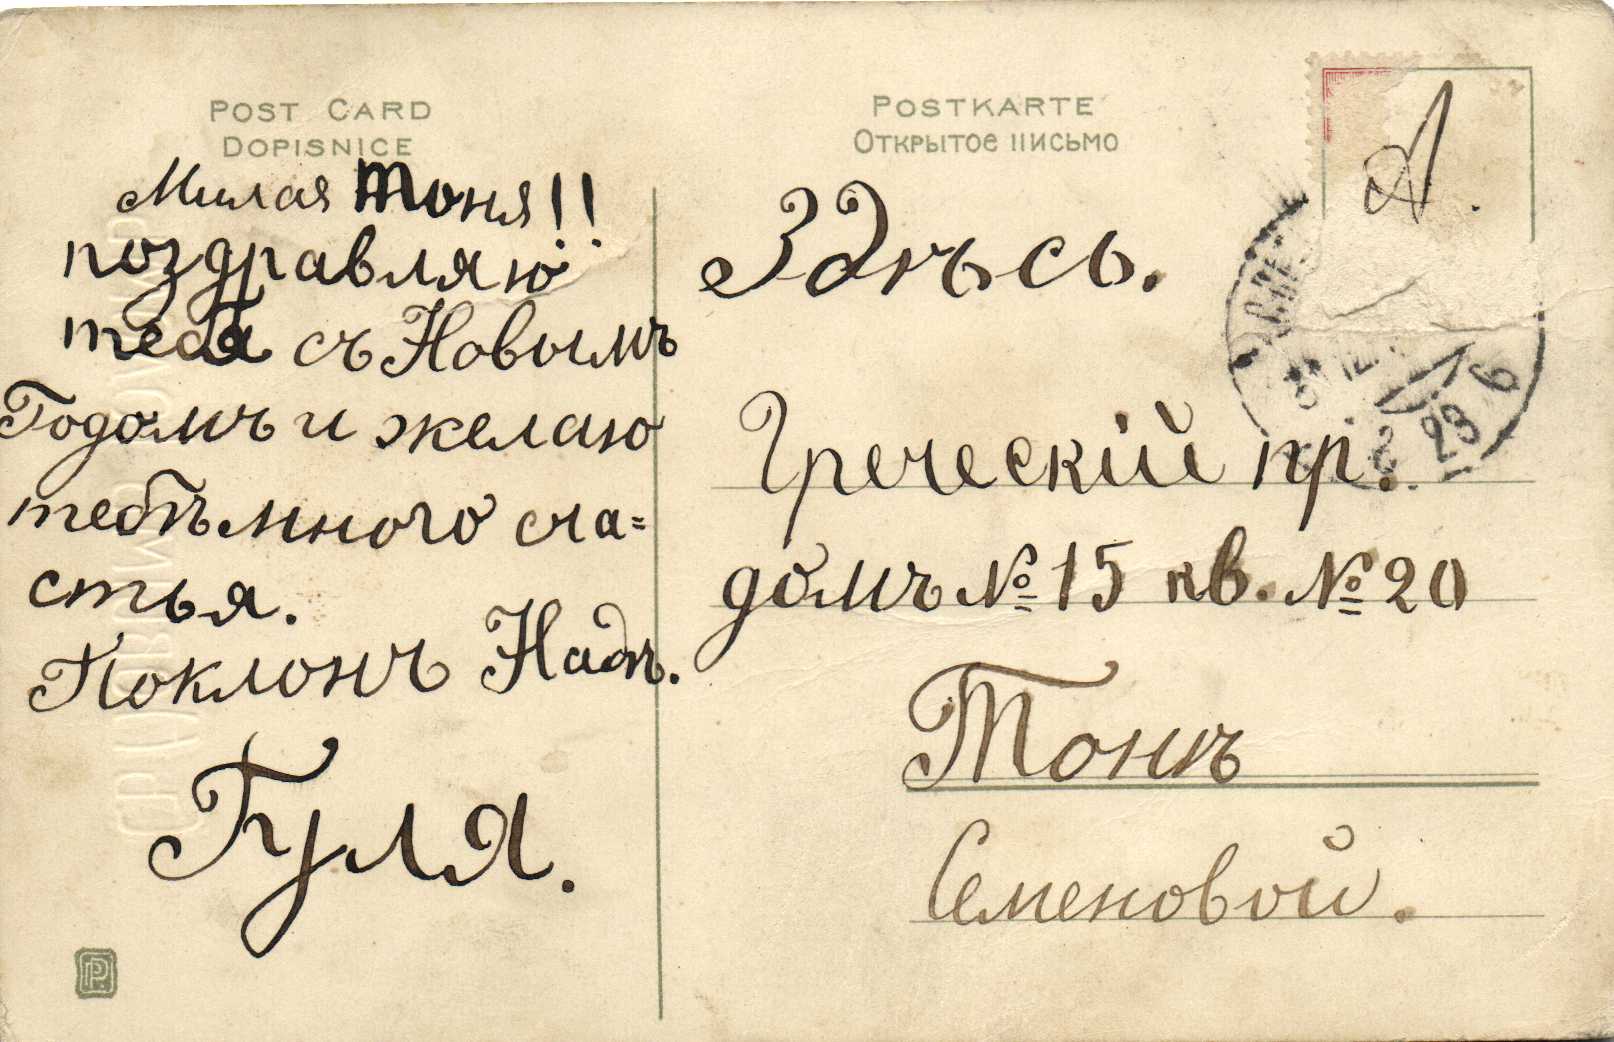 POST CARD
DOPISNICE
Милая Тоня!!
поздравляю
тебя съ Новымъ
Годомъ и желаю
тебѣ много сча=
стья.
Поклонъ Надѣ.
Гуля.
POSTKARTE
Открытое письмо
Здѣсь.
Греческій пр.
домъ № 15 кв. № 20
Тонѣ
Семеновой.